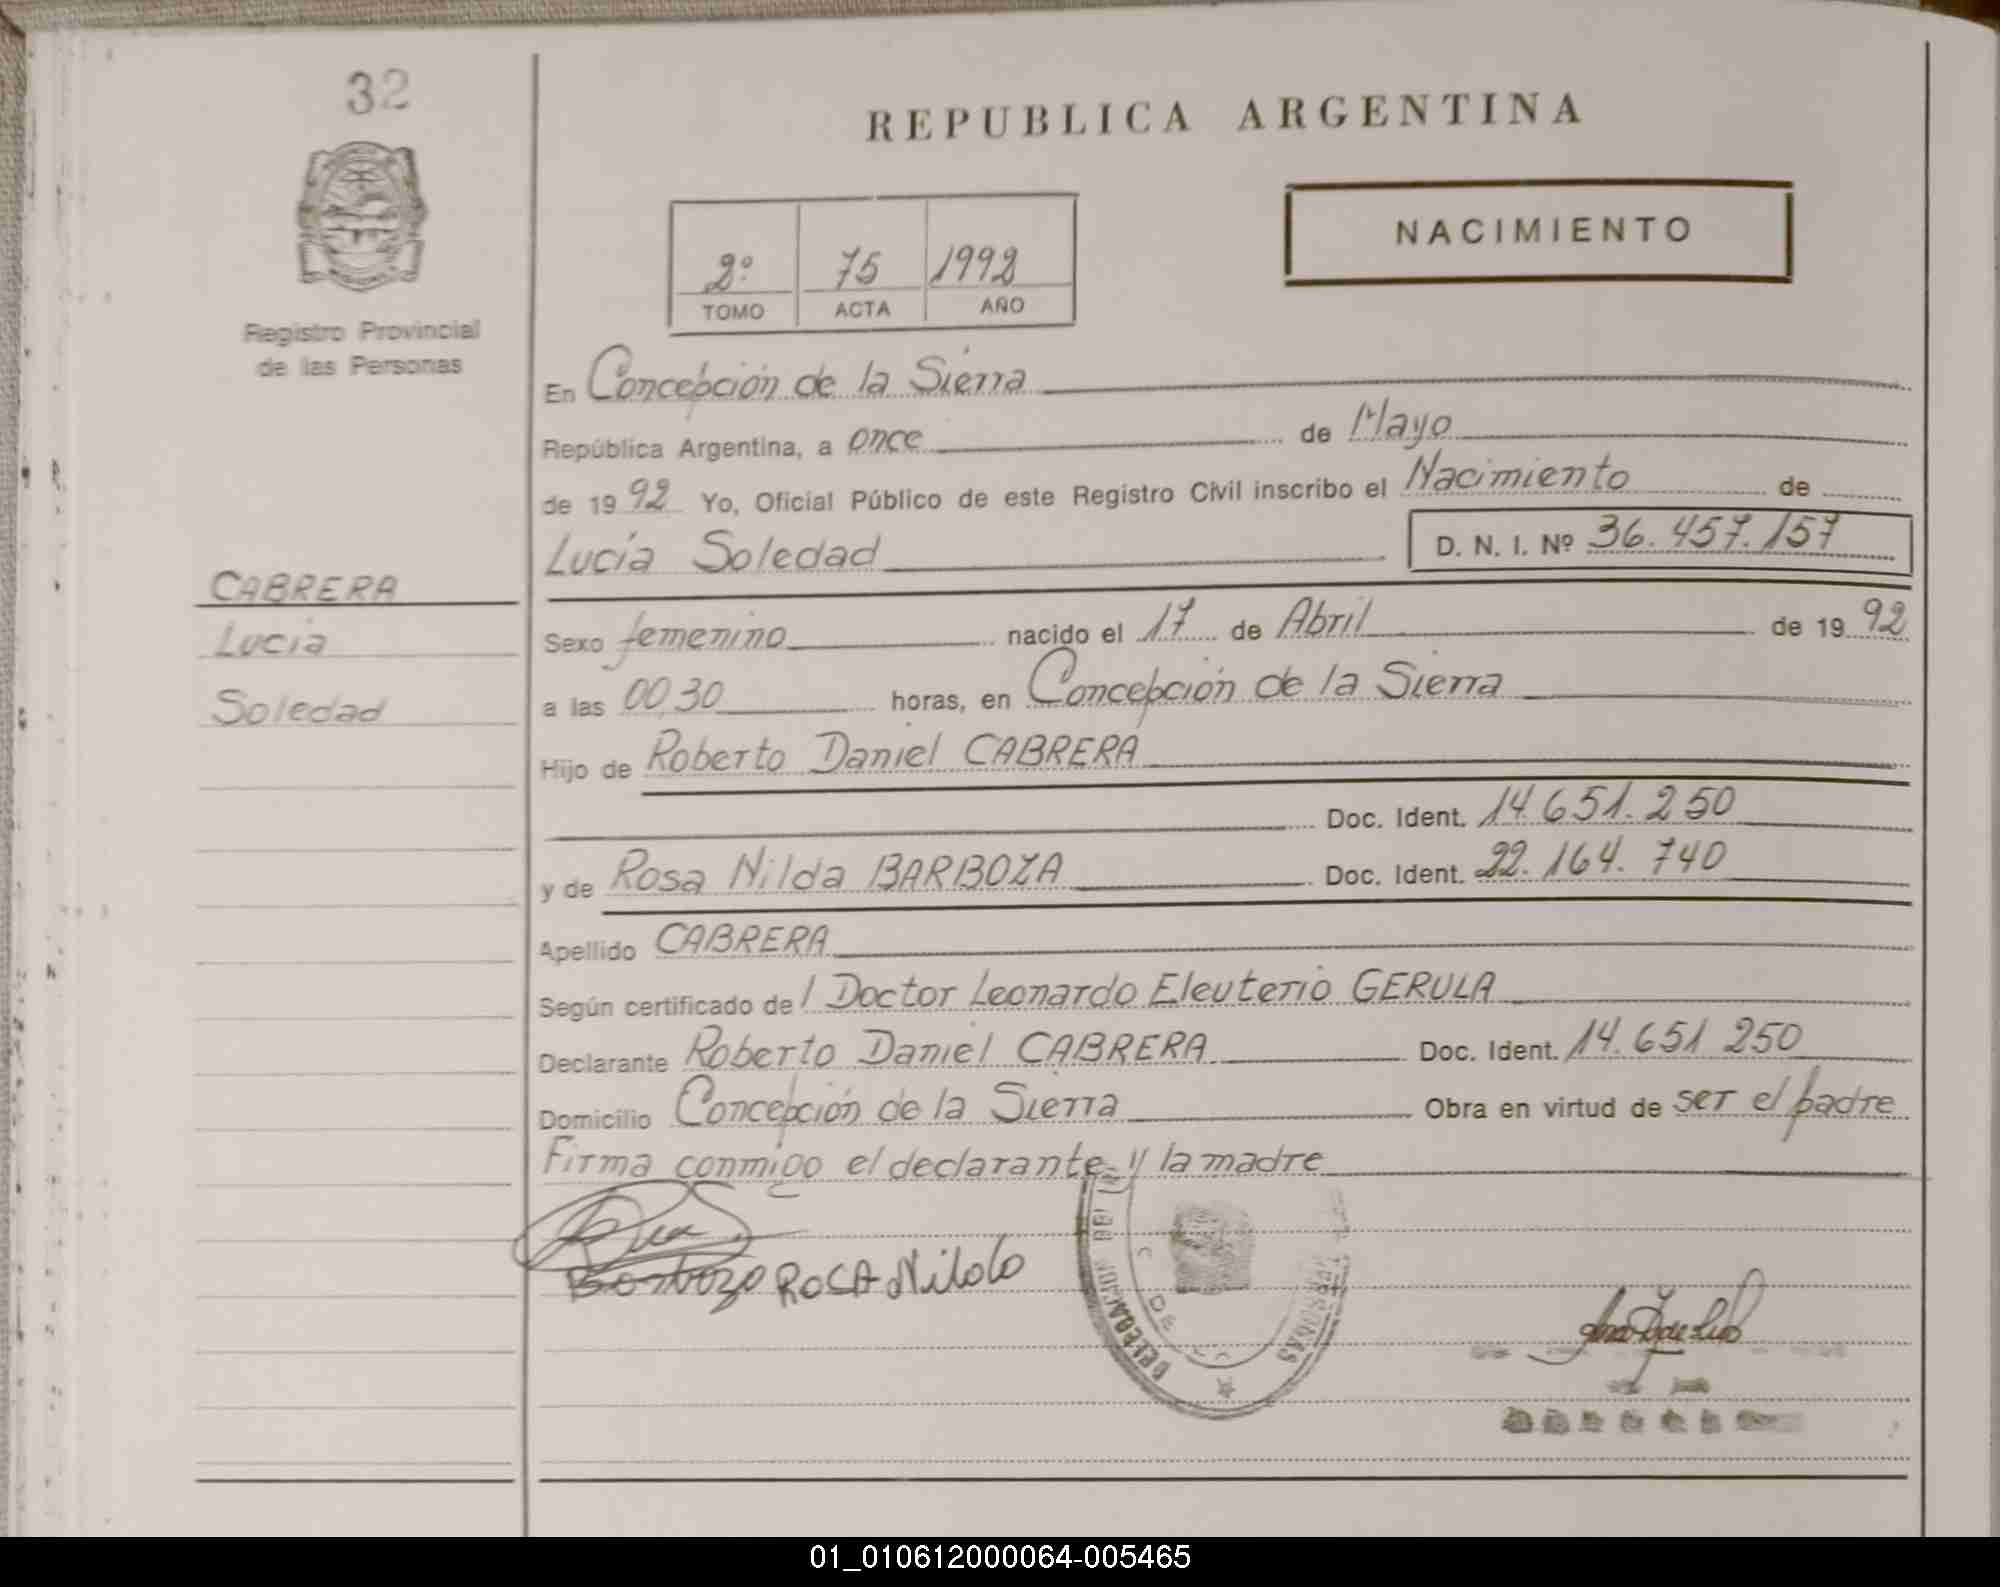 32
REPUBLICA ARGENTINA
NACIMIENTO
2º 75 1992
TOMO ACTA AÑO
Registro Provincial
de las Personas
En Concepción de la Sierra
República Argentina, a once de Mayo
de 1992 Yo, Oficial Público de este Registro Civil inscribo el Nacimiento de
Lucía Soledad D. N. I. Nº 36.457.157
CABRERA
Lucía
Soledad
Sexo femenino nacido el 17 de Abril de 1992
a las 00,30 horas, en Concepción de la Sierra
Hijo de Roberto Daniel CABRERA
Doc. Ident. 14.651.250
y de Rosa Nilda BARBOZA Doc. Ident. 22.164.740
Apellido CABRERA
Según certificado del Doctor Leonardo Eleuterio GERULA
Declarante Roberto Daniel CABRERA Doc. Ident. 14.651.250
Domicilio Concepción de la Sierra Obra en virtud de ser el padre
Firma conmigo el declarante y la madre
ROSA Nilda
DE
01_010612000064-005465